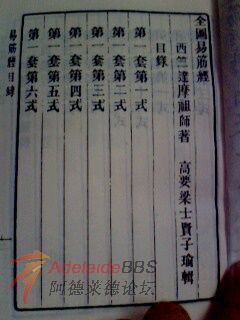 全圖易筋經
西竺達摩祖師著　高要梁士賢子瑜輯
目錄
第一套第一式
第一套第二式
第一套第三式
第一套第四式
第一套第五式
第一套第六式
易筋經目錄
一
AdelaideBBS
阿德莱德论坛